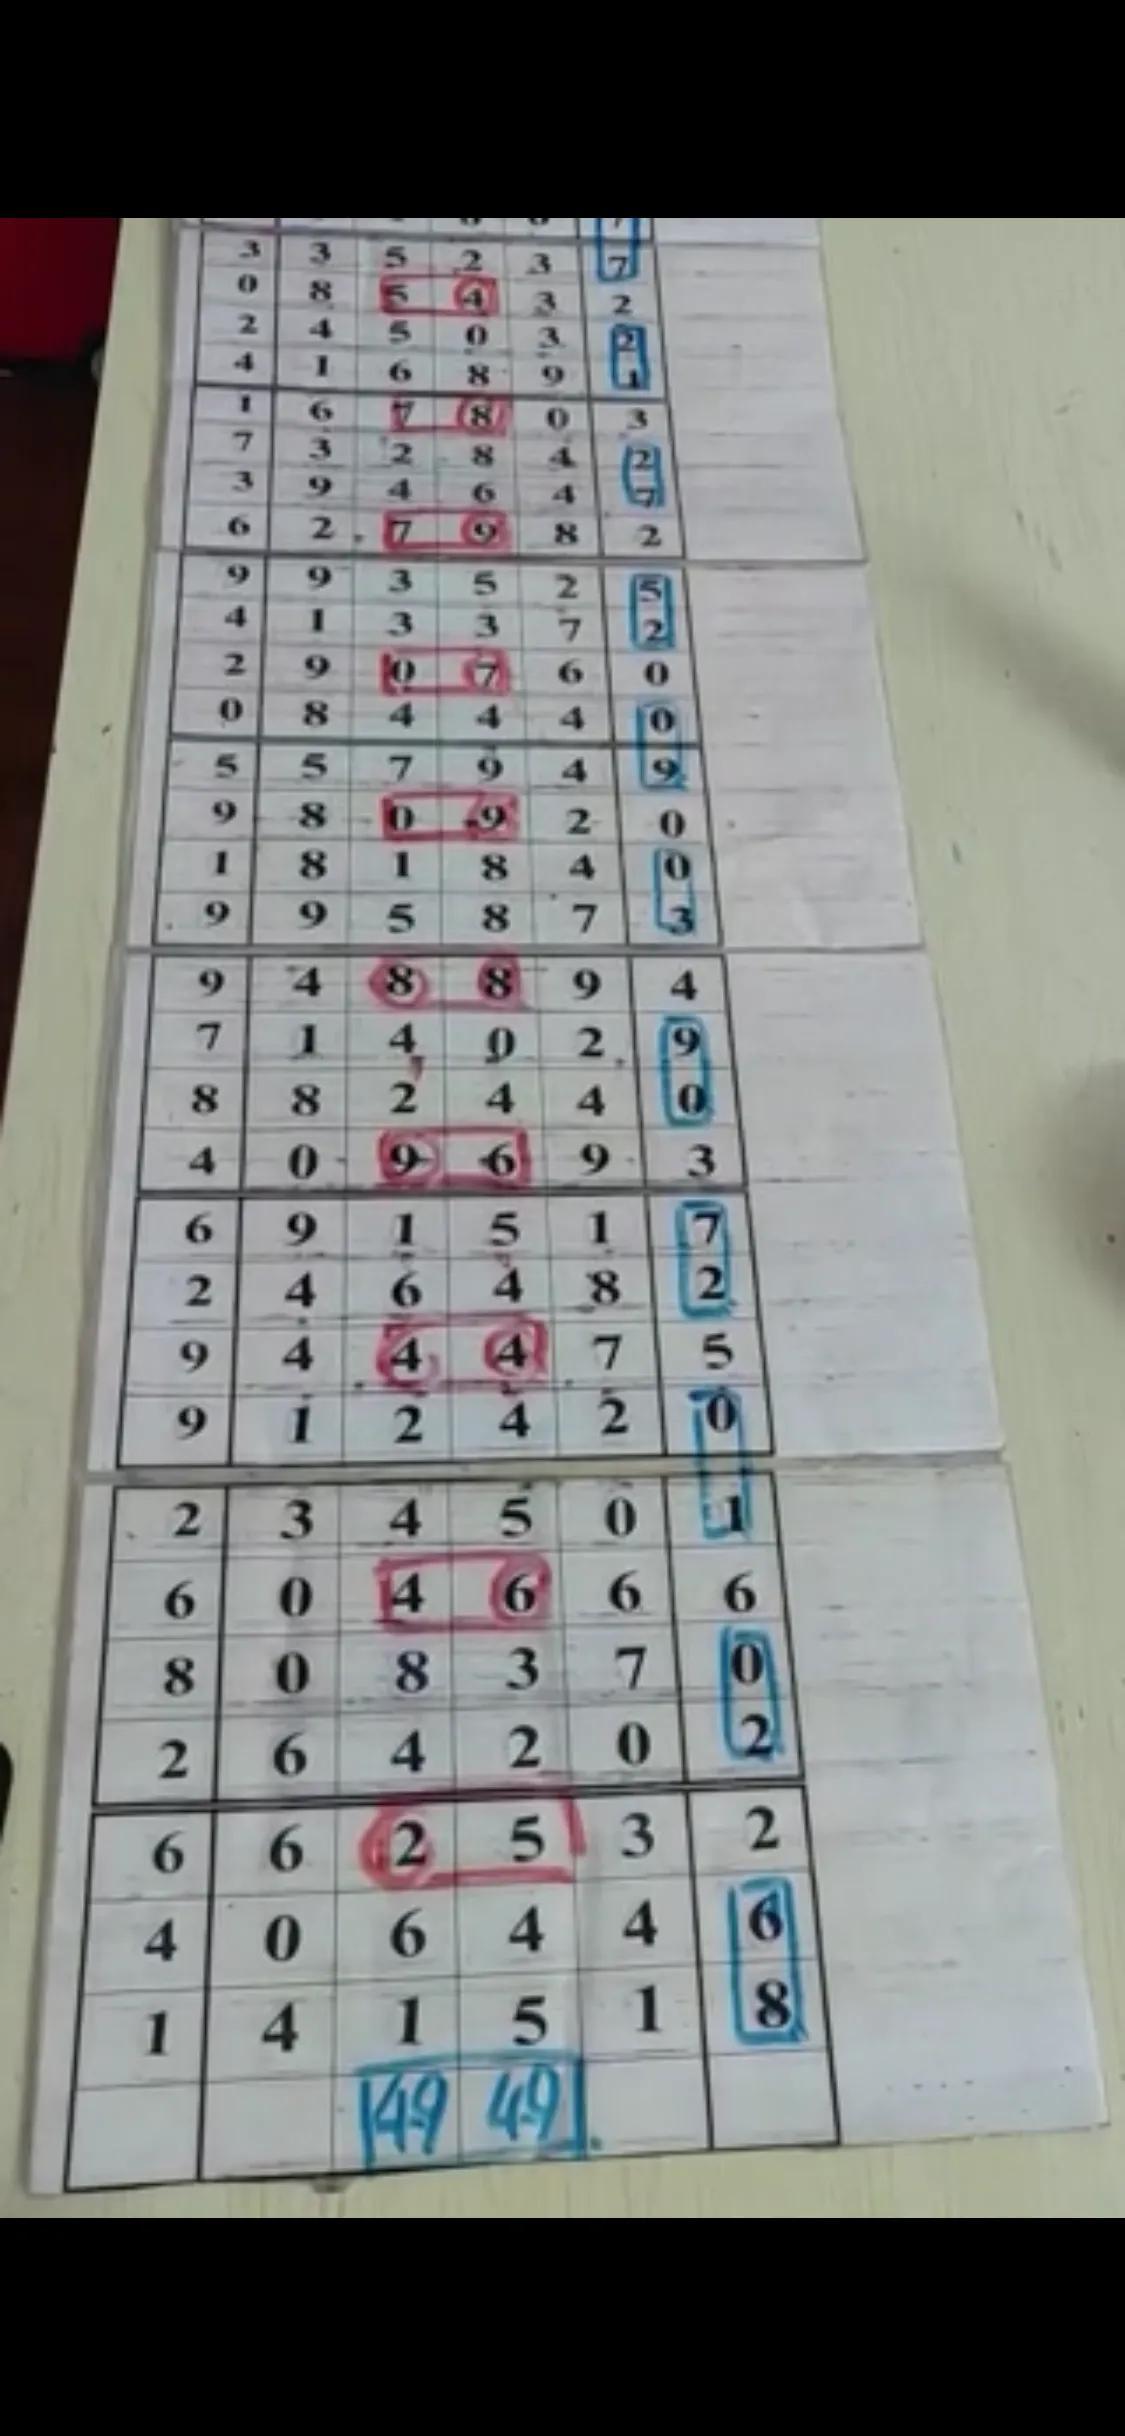 3 3 5 2 3 7
0 8 5 4 3 2
2 4 5 0 3 2
4 1 6 8 9 1
1 6 7 8 0 3
7 3 2 8 4 2
3 9 4 6 4 7
6 2 7 9 8 2
9 9 3 5 2 5
4 1 3 3 7 2
2 9 0 7 6 0
0 8 4 4 4 0
5 5 7 9 4 9
9 8 0 9 2 0
1 8 1 8 4 0
9 9 5 8 7 3
9 4 8 8 9 4
7 1 4 0 2 9
8 8 2 4 4 0
4 0 9 6 9 3
6 9 1 5 1 7
2 4 6 4 8 2
9 4 4 4 7 5
9 1 2 4 2 0
2 3 4 5 0 1
6 0 4 6 6 6
8 0 8 3 7 0
2 6 4 2 0 2
6 6 2 5 3 2
4 0 6 4 4 6
1 4 1 5 1 8
49 49